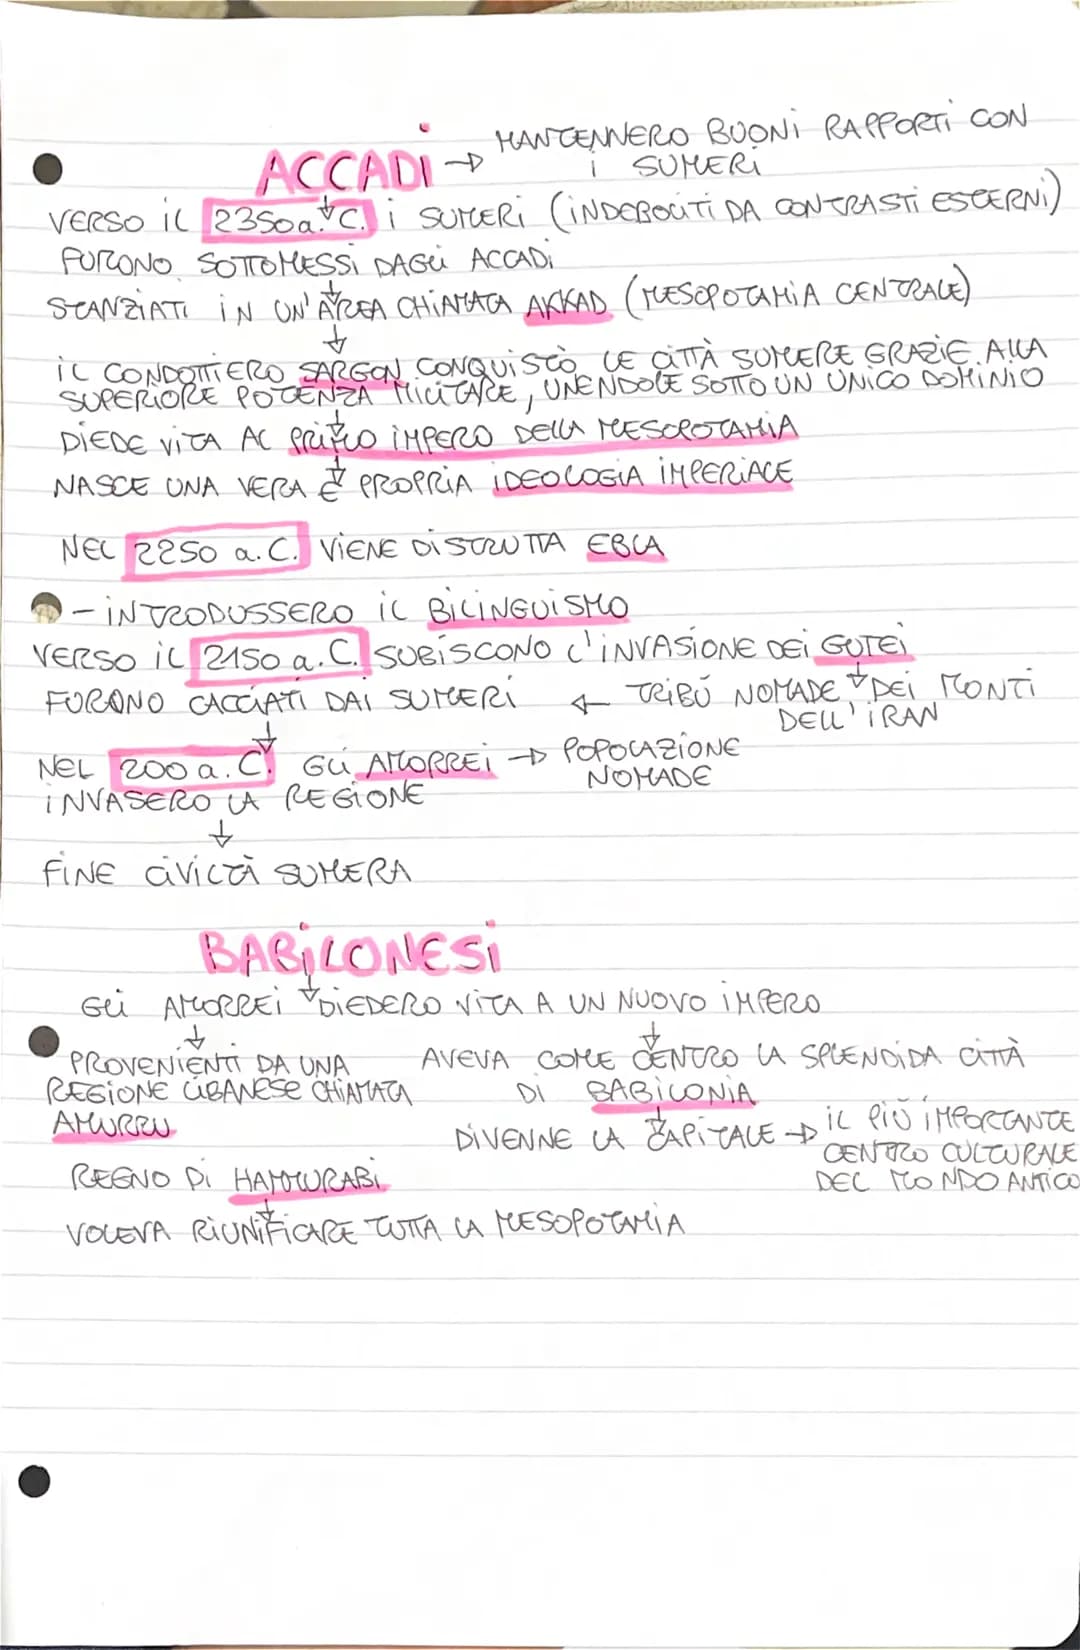 ACCADI → MANTENNERO BUONI RAPPORTI CON
I SUMERI
VERSO IL 2350 a.C. I SUMERI (INDEBOLITI DA CONTRASTI ESTERNI)
FURONO SOTTOMESSI DAGLI ACCADI
STANZIATI IN UN'AREA CHIAMATA AKKAD (MESOPOTAMIA CENTRALE)
↓
IL CONDOTTIERO SARGON CONQUISTÒ LE CITTÀ SUMERE GRAZIE ALLA
SUPERIORE POTENZA MILITARE, UNENDOLE SOTTO UN UNICO DOMINIO
DIEDE VITA AL PRIMO IMPERO DELLA MESOPOTAMIA
NASCE UNA VERA E PROPRIA IDEOLOGIA IMPERIALE
NEL 2250 a.C. VIENE DISTRUTTA EBLA
- INTRODUSSERO IL BILINGUISMO
VERSO IL 2150 a.C. SUBISCONO L'INVASIONE DEI GUTEI
FURONO CACCIATI DAI SUMERI ← TRIBÚ NOMADE DEI MONTI
DELL'IRAN
NEL 200 a.C. GLI AMORREI → POPOLAZIONE
NOMADE
INVASERO LA REGIONE
↓
FINE CIVILTÀ SUMERA
BABILONESI
GLI AMORREI DIEDERO VITA A UN NUOVO IMPERO
↓ ↓
PROVENIENTI DA UNA AVEVA COME CENTRO LA SPLENDIDA CITTÀ
REGIONE LIBANESE CHIAMATA DI BABILONIA
AMURRU DIVENNE LA CAPITALE → IL PIÙ IMPORTANTE
CENTRO CULTURALE
REGNO DI HAMMURABI DEL MONDO ANTICO
VOLEVA RIUNIFICARE TUTTA LA MESOPOTAMIA